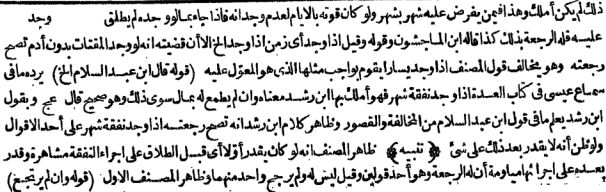 ذلك لم يكن أملك وهذا فيمن يفرض عليه شهر بشهر ولو كان قوته بالايام لعدم وجد انه فاذا جاء بمالو وجده لم يطلق وجد
عليه فله الرجعة بذلك كذا قاله ابن الماجشون وقوله وقيل اذا وجد أى زمن اذا وجد الخ الا أن قضيته انه لو وجد المقتات بدون أدم تصح
رجعته وهو يخالف قول المصنف اذا وجد يسارا يقوم بواجب مثلها الذى هو المعول عليه (قوله قال ابن عبد السلام الخ) يرده ما فى
سماع عيسى فى كتاب العدة اذا وجد نفقة شهر فهو أملك بها ابن رشد معناه وان لم يطمع له بمال سوى ذلك وهو صحيح قال عج وبقول
ابن رشد يعلم ما فى قول ابن عبد السلام من المخالفة والقصور وظاهر كلام ابن رشد انه تصح رجعته اذا وجد نفقة شهر على أحد الاقوال
ولو ظن أنه لا يقدر بعد ذلك على شئ ﴿تنبيه﴾ ظاهر المصنف انه لو كان يقدر أولا أى قبل الطلاق على اجراء النفقة مشاهرة وقدر
بعده على اجرائها مياومة أن له الرجعة وهو أحد قولين وقيل ليس له ولم يرجح واحد منهما وظاهر المصنف الاول (قوله وان لم يرتجع)